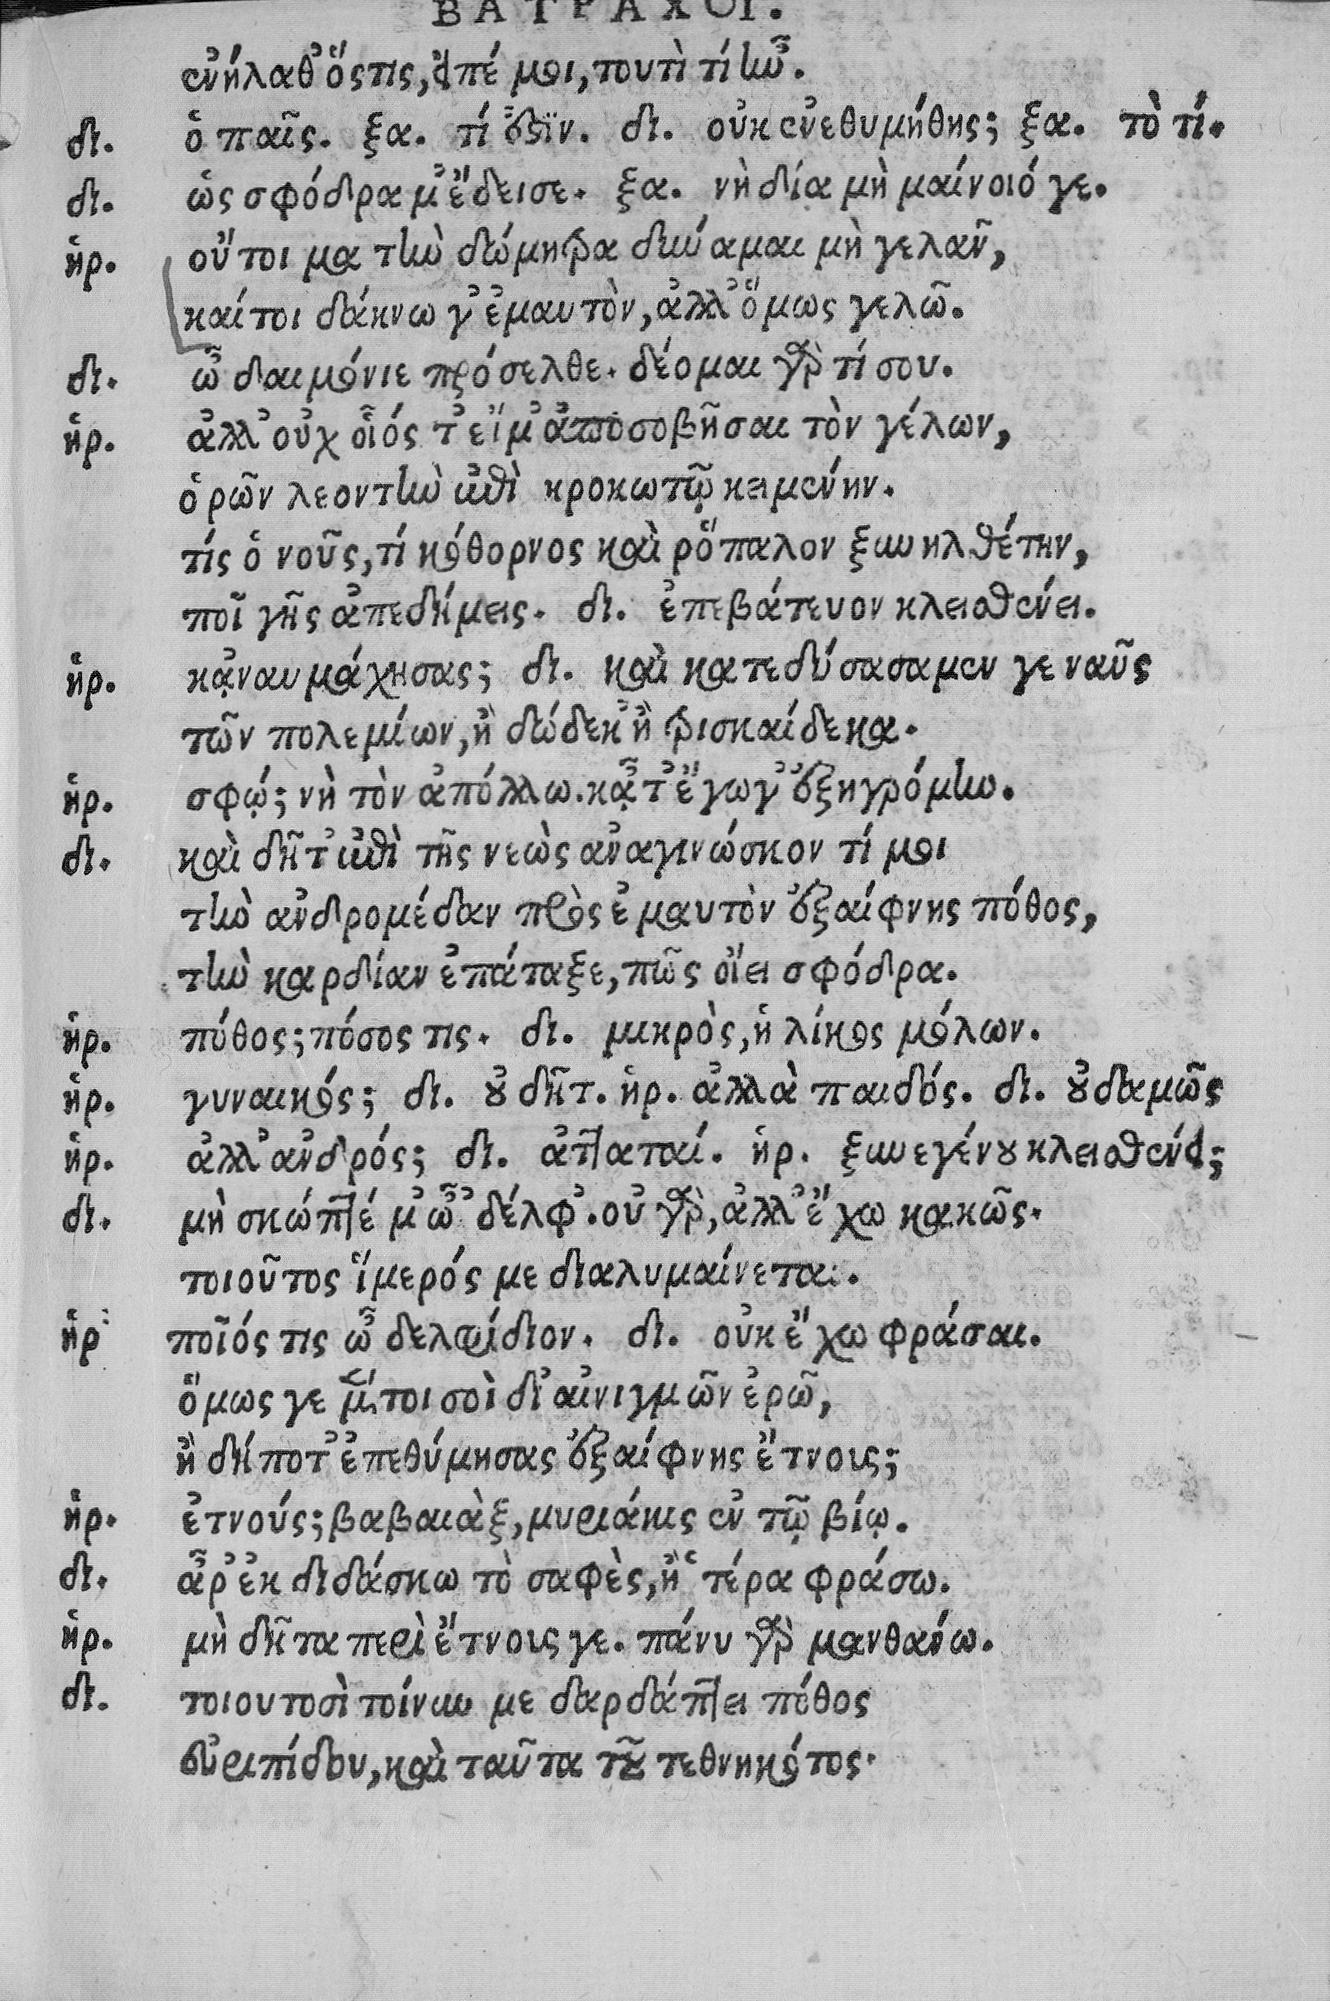 ΒΑΤΡΑΧΟΙ.
ἐνήλαθ᾽ ὅστις, εἰπέ μοι, τουτὶ τί ἦν.
δι. ὁ παῖς. ξα. τί ἐστϊν. δι. οὐκ ἐνεθυμήθης; ξα. τὸ τί.
δι. ὡς σφόδρα μ᾽ ἔδεισε. ξα. νὴ δία μὴ μαίνοιό γε.
ἡρ. οὔτοι μα τὴν δώμητρα δύναμαι μὴ γελᾶν,
καίτοι δάκνω γ᾽ ἐμαυτὸν, ἀλλ᾽ ὅμως γελῶ.
δι. ὦ δαιμόνιε πρόσελθε. δέομαι γὰρ τί σου.
ἡρ. ἀλλ᾽ οὐχ οἷός τ᾽ εἴμ᾽ ἀποσοβῆσαι τὸν γέλων,
ὁρῶν λεοντὴν ἐπὶ κροκωτῷ κειμένην.
τίς ὁ νοῦς, τί κόθορνος καὶ ῥόπαλον ξυνηλθέτην,
ποῖ γῆς ἀπεδήμεις. δι. ἐπεβάτευον κλεισθένει.
ἡρ. κᾀναυμάχησας; δι. καὶ κατεδύσασαμεν γε ναῦς
τῶν πολεμίων, ἢ δώδεκ᾽ ἢ τρισκαίδεκα.
ἡρ. σφῴ; νὴ τὸν ἀπόλλω. κᾆτ᾽ ἔγωγ᾽ ἐξηγρόμην.
δι. καὶ δῆτ᾽ ἐπὶ τῆς νεὼς ἀναγινώσκον τί μοι
τὴν ἀνδρομέδαν πρὸς ἐμαυτὸν ἐξαίφνης πόθος,
τὴν καρδίαν ἐπάταξε, πῶς οἴει σφόδρα.
ἡρ. πύθος; πόσος τις. δι. μικρὸς, ἡλίκος μόλων.
ἡρ. γυναικός; δι. οὐ δῆτ. ἡρ. ἀλλὰ παιδός. δι. οὐδαμῶς
ἡρ. ἀλλ᾽ ἀνδρός; δι. ἀππαταί. ἡρ. ξυνεγένου κλεισθένει;
δι. μὴ σκώπτέ μ᾽ ὦ᾽ δέλφ᾽. οὐ γὰρ, ἀλλ᾽ ἔχω κακῶς.
τοιοῦτος ἵμερός με διαλυμαίνεται.
ἡρ ποῖός τις ὦ δελφίδιον. δι. οὐκ ἔχω φράσαι.
ὅμως γε μέντοι σοὶ δι᾽ αἰνιγμῶν ἐρῶ,
ἢ δήποτ᾽ ἐπεθύμησας ἐξαίφνης ἔτνους;
ἡρ. ἐτνούς; βαβαιὰξ, μυριάκις ἐν τῷ βίῳ.
δι. ἆρ᾽ ἐκ διδάσκω τὸ σαφὲς, ἢ ῾τέρα φράσω.
ἡρ. μὴ δῆτα περὶ ἔτνους γε. πάνυ γὰρ μανθάνω.
δι. τοιουτοσὶ τοίνυν με δαρδάπτει πόθος
εὐριπίδου, καὶ ταῦτα τοῦ τεθνηκότος.